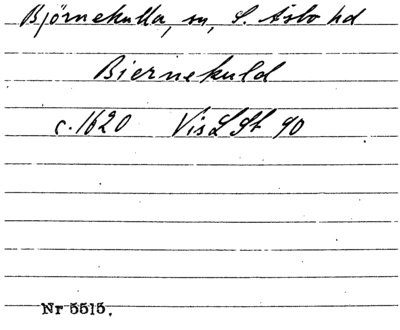 Björnekulla, sn, S. Åsbo hd
Biernekuld
c. 1620 Vis L St 90
Nr 5515.